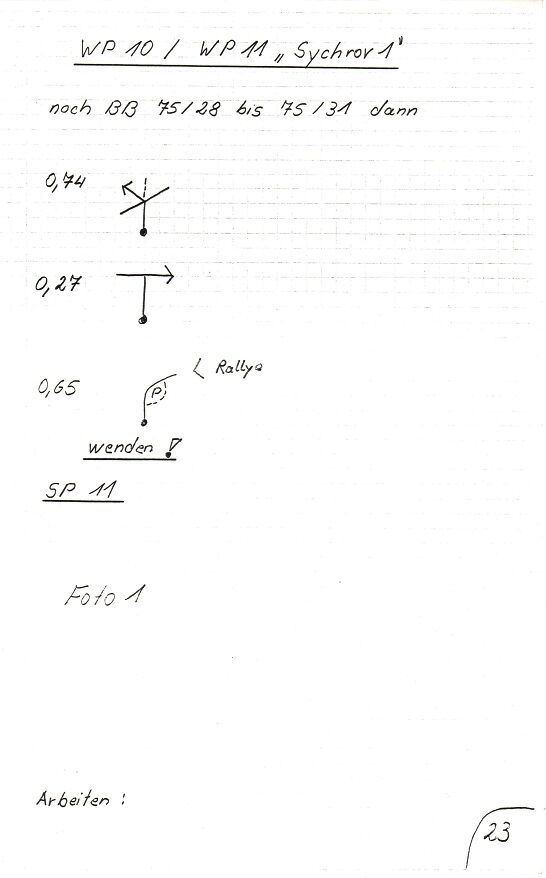 WP 10 / WP 11 „Sychrov 1"
nach BB 75/28 bis 75/31 dann
0,74
0,27
< Rallye
0,65
P
wenden !
SP 11
Foto 1
Arbeiten :
23